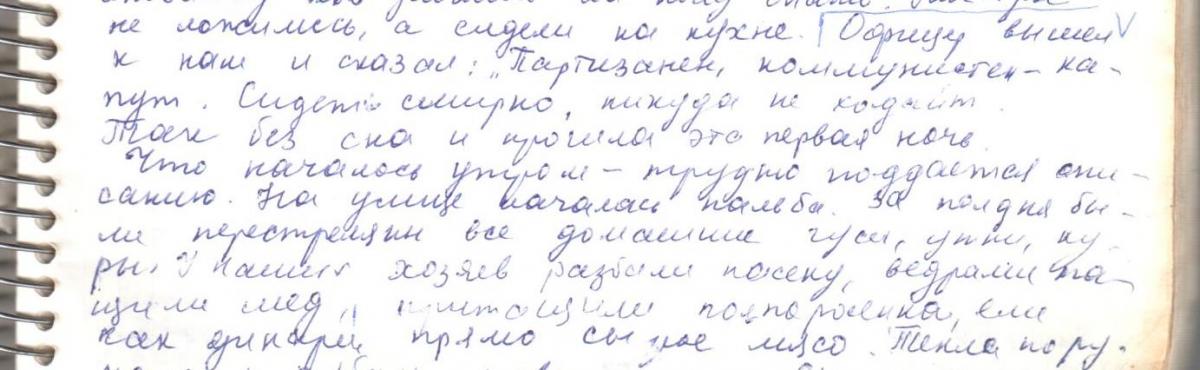 не ложились, а сидели на кухне. Офицер вышел
к нам и сказал: „Партизанен, коммунистен – ка-
пут. Сидеть смирно, никуда не ходайт.
Так без сна и прошла эта первая ночь.
Что началось утром – трудно поддается опи-
санию. На улице началась пальба. За полдня бы-
ли перестреляны все домашние гуси, утки, ку-
ры. У наших хозяев разбили пасеку, ведрами та-
щили мед, притащили поросенка, ели
как дикари прямо сырое мясо. Текла по ру-